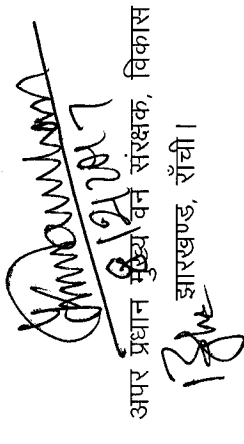 8/2/2017
अपर प्रधान मुख्य वन संरक्षक, विकास
झारखण्ड, राँची।